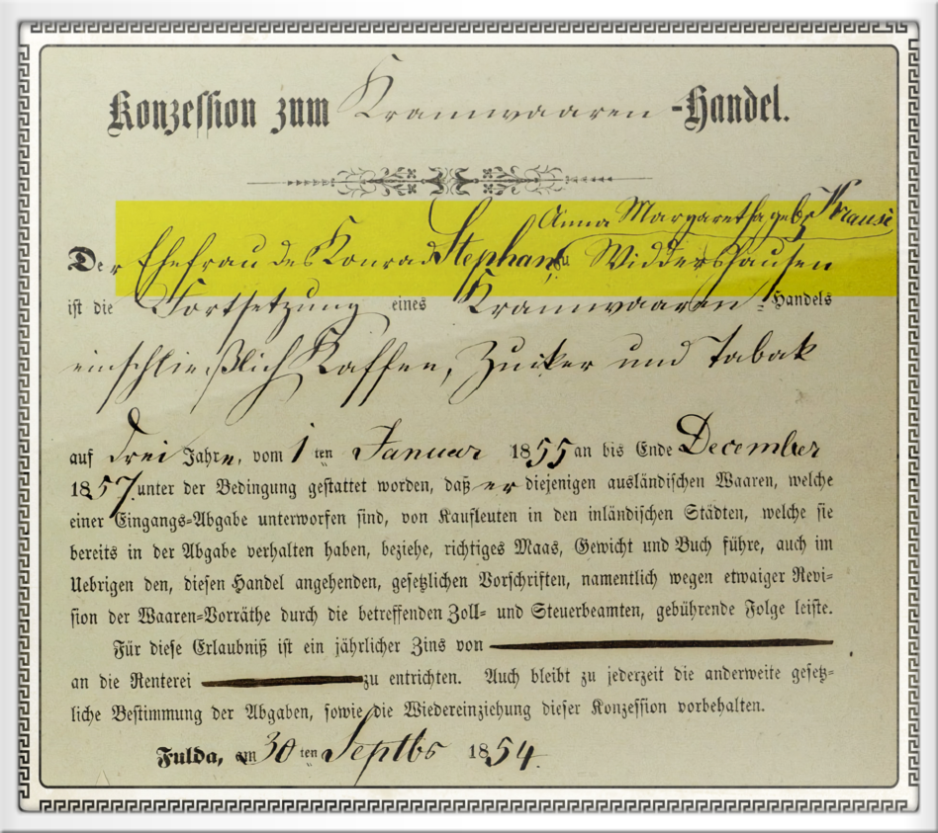 Konzession zum Kramwaaren-Handel.
Anna Margaretha geb. Krause
Der Ehefrau des Konrad Stephan zu Widdershausen
ist die Fortsetzung eines Kramwaaren-Handels
einschließlich Kaffee, Zucker und Tabak
auf drei Jahre, vom 1ten Januar 1855 an bis Ende December
1857 unter der Bedingung gestattet worden, daß er diejenigen ausländischen Waaren, welche
einer Eingangs-Abgabe unterworfen sind, von Kaufleuten in den inländischen Städten, welche sie
bereits in der Abgabe verhalten haben, beziehe, richtiges Maas, Gewicht und Buch führe, auch im
Uebrigen den, diesen Handel angehenden, gesetzlichen Vorschriften, namentlich wegen etwaiger Revi-
sion der Waaren-Vorräthe durch die betreffenden Zoll- und Steuerbeamten, gebührende Folge leiste.
Für diese Erlaubniß ist ein jährlicher Zins von
an die Renterei zu entrichten. Auch bleibt zu jederzeit die anderweite gesetz-
liche Bestimmung der Abgaben, sowie die Wiedereinziehung dieser Konzession vorbehalten.
Fulda, am 30ten Septbr 1854.